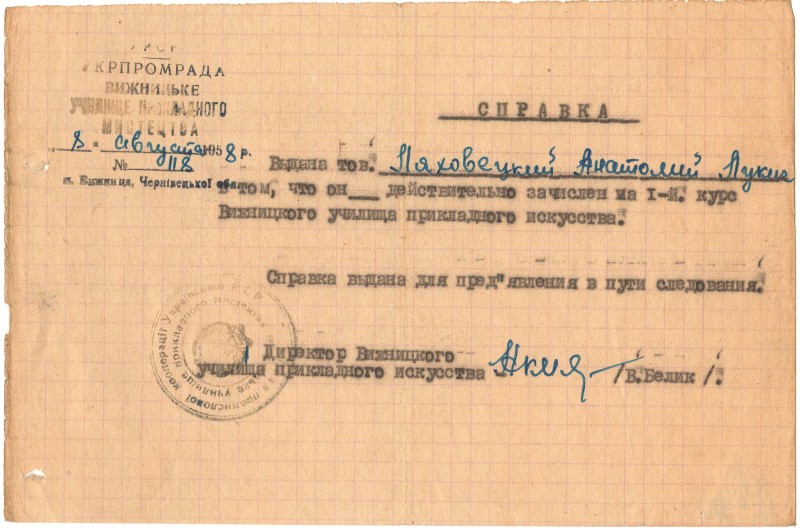 УРСР
УКРПРОМРАДА
ВИЖНИЦЬКЕ
УЧИЛИЩЕ ПРИКЛАДНОГО
МИСТЕЦТВА
„ 8 " августа 1958 р.
№ 118
м. Вижниця, Чернівецької обл.
СПРАВКА
Выдана тов. Ляховецкий Анатолий Лукич
в том, что он___ действительно зачислен на I-й. курс
Вижницкого училища прикладного искусства.
Справка выдана для пред"явления в пути следования.
Директор Вижницкого
училища прикладного искусства /В.Белик/.
кооперації Української
прикладного мистецтва
промислової
училище